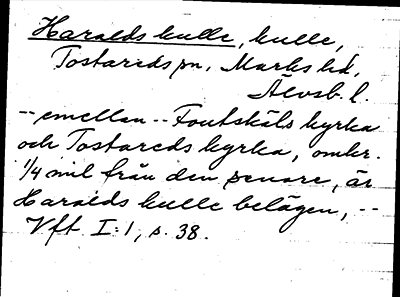 Haralds kulle, kulle,
Tostareds sn, Marks hd,
Älvsb. l.
-- emellan -- Fontskäls kyrka
och Tostareds kyrka, omkr.
1/4 mil från den senare, är
Haralds kulle belägen, --
Vft I:1, s. 38.